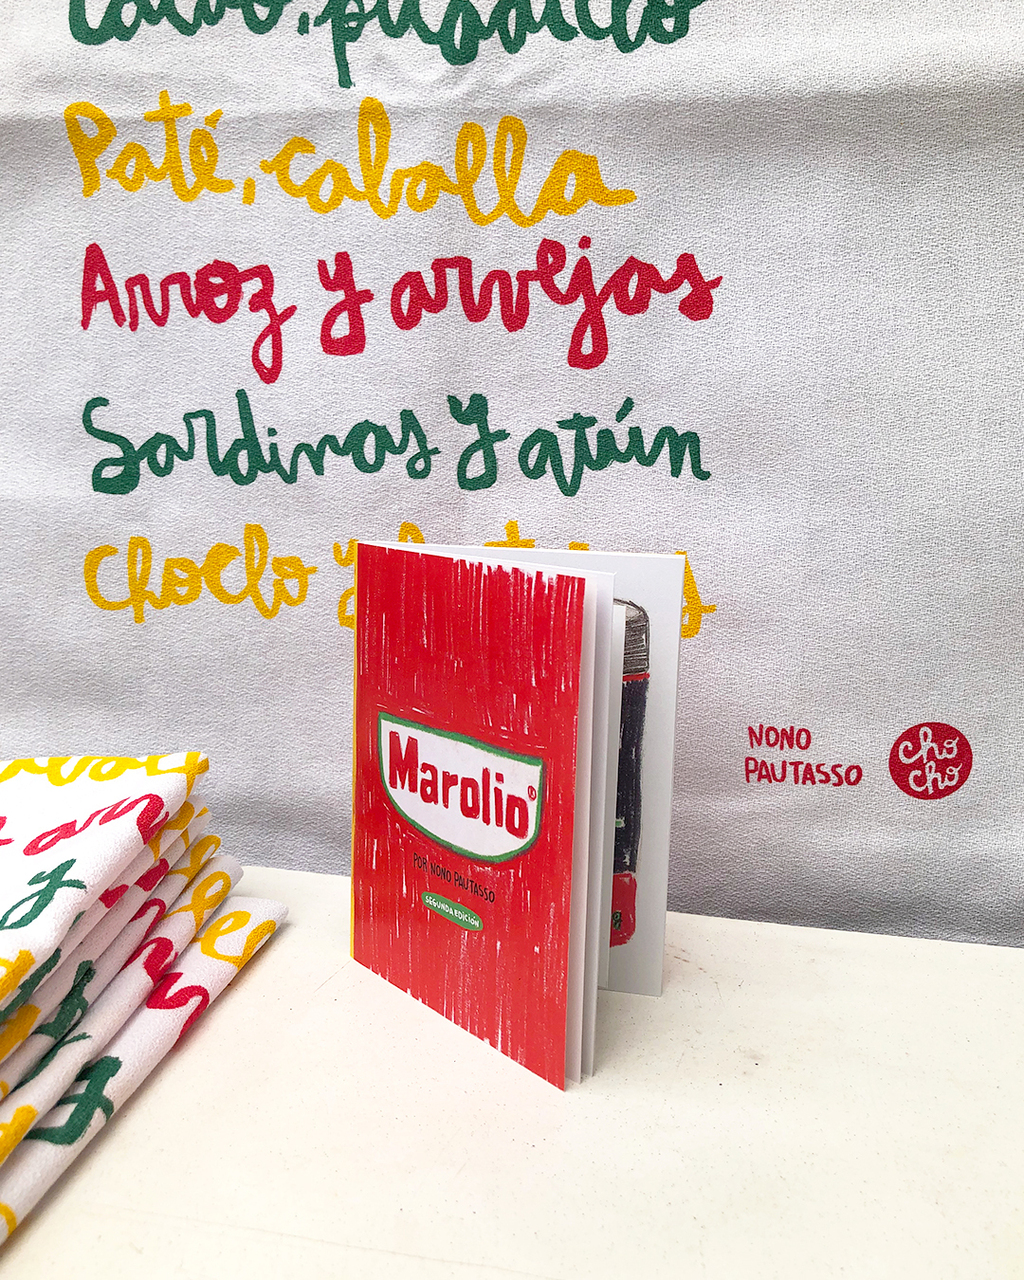 Paté, caballa
Arroz y arvejas
Sardinas y atún
Choclo y
Marolio®
POR NONO PAUTASSO
SEGUNDA EDICIÓN
NONO
PAUTASSO
cho
cho